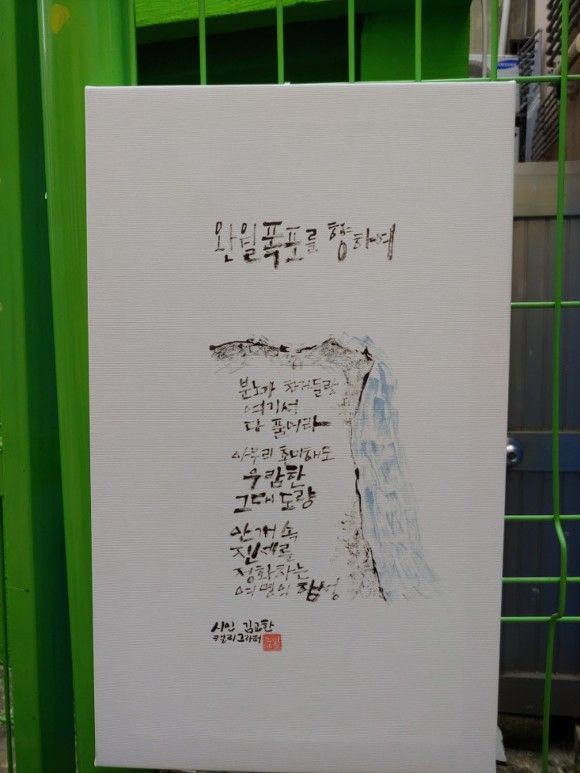 완월폭포를 향하여
분노가 차거들랑
여기서
다 풀어라
아무리 포마해도
우람한
그대 도량
안개 속
진세를
정화하는
여명의 함성
시인 김교한
캘리그라퍼